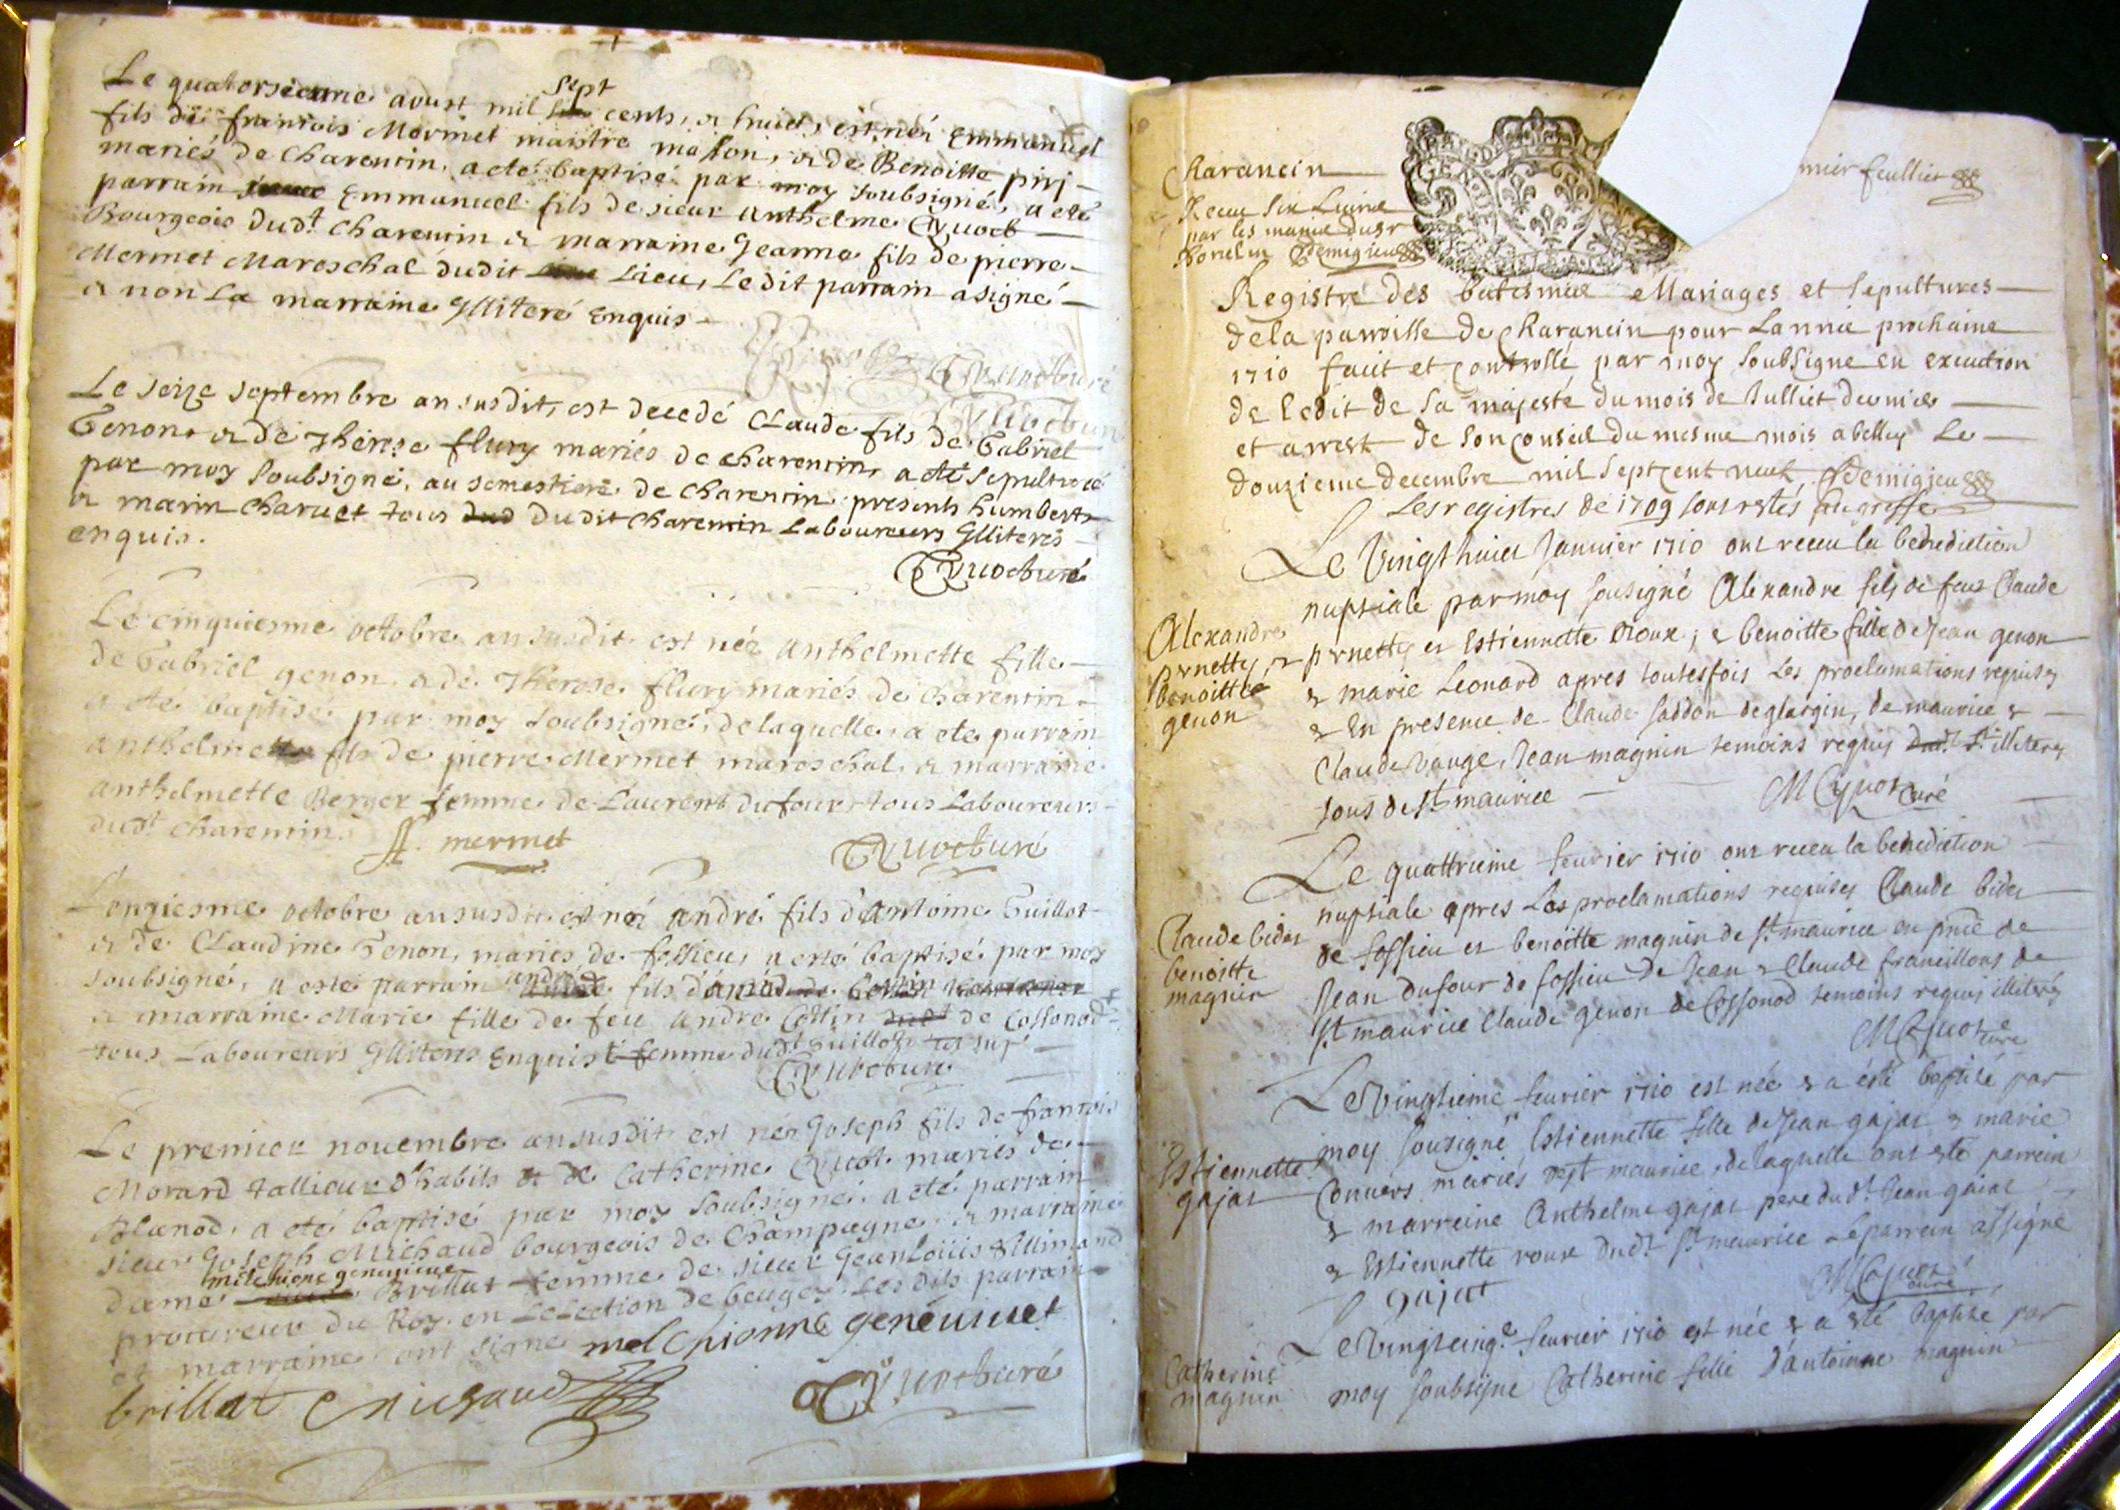 Le quatorsiemme avust mil sept cents, & huict, est néi Emmanuel
fils de francois Mormet maistre masson, & de Benoitte piri-
mariés de charencin, a eté baptisé par moy soubsigné, a eté
parrain Emmanuel fils de sieur Anthelme Cyuoct
Bourgeois dudt charencin & marraine Jeanne fils de pierre
Mermet Mareschal dudit Lieu, Le dit parrain a signé
& non La marraine Glliteré Enquis
Cyuoct curé
Le seize septembre an susdit, est decedé Claude fils de Gabriel
Genon & de Therese flury mariés de charencin, a eté sepulturé
par moy soubsigné, au semestiere de charencin presents humbert
& marin charuet tous dudit charencin Laboureurs Glliterés
enquis.
Cyuoct curé
Le cinquiesme octobre an susdit est née Anthelmette fille
de Gabriel genon & de Therese flury mariés de charencin
a ete baptisé par moy soubsigné, de laquelle a ete parrain
anthelme fils de pierre Mermet mareschal & marraine
anthelmette Berger femme de Laurent dufour tous Laboureurs
dudt charencin
A. mermet Cyuoct curé
L'onziesme octobre an susdit est néi André fils d'Antoine Guillot
& de Claudine Genon, mariés de fossieu, a esté baptisé par moy
soubsigné, a esté parrain andré fils d'
& marraine Marie fille de feu André Cottin de Cossonod
tous Laboureurs Glliterés Enquis femme dudt Guillot
Cyuoct curé
Le premier nouembre an susdit est néi Joseph fils de francois
Morard tallieur d'habits & de Catherine Cyuot mariés de
Blanod, a eté baptisé par moy soubsigné, a eté parrain
sieur Joseph Michaud bourgeois de Champagne, & marraine
dame melchione geneuieue Brillat femme de sieur Jean Loüis
procureur du Roy en Lelection de beugey. Les dits parrain
et marraine ont signé melchionne geneuieue
brillat Michaud Cyuoct curé
Charancin mier feulliet
Receu six Liures
par les mains du sr
Demigieu
Registre des batesmes Mariages et sepultures
de la parroisse de Charancin pour Lannée prochaine
1710 faict et controllé par moy soubsigne en execution
de Ledit de sa majesté du mois de Julliet dernier
et arrest de son conseil du mesme mois a belley Le
douzieme decembre mil sept cent neuf Demigieu
Les registres de 1709 sont restés au greffe
Le Vingt huict Januier 1710 ont receu la benediction
nuptiale par moy sousigné Alexandre fils de feus Claude
Alexandre
prnettz et Estiennette Roux; & benoitte fille de Jean genon
prnettz &
benoitte
genon
& marie Leonard apres toutesfois Les proclamations requises
& En presence de Claude saddon de glargin, de maurice &
Claude vauge, Jean magnin temoins requis illiterez
tous de St maurice
M Cyuot curé
Le quattrieme feurier 1710 ont receu la benediction
nuptiale apres Les proclamations requises Claude bidet
Claude bidet
benoitte
magnin
de fossieu et benoitte magnin de St maurice en pnce de
Jean Dufour de fossieu de Jean & Claude francillons de
St maurice Claude genon de Cossonod temoins requis illiterés
M Cyuot curé
Le Vingtieme feurier 1710 est née & a été baptisé par
moy sousigné Estiennette fille de Jean gajat & marie
Estiennette
gajat
Conuers mariés de St maurice, de laquelle ont esté parrein
& marreine Anthelme gajat pere dudt Jean gajat
& Estiennette roux dudt St maurice Le parrein a signé
gajat M Cyuot curé
Le Vingt cinqe feurier 1710 est née & a été baptisé par
Catherine
magnin
moy soubsigne Catherine fille d'antoinne magnin